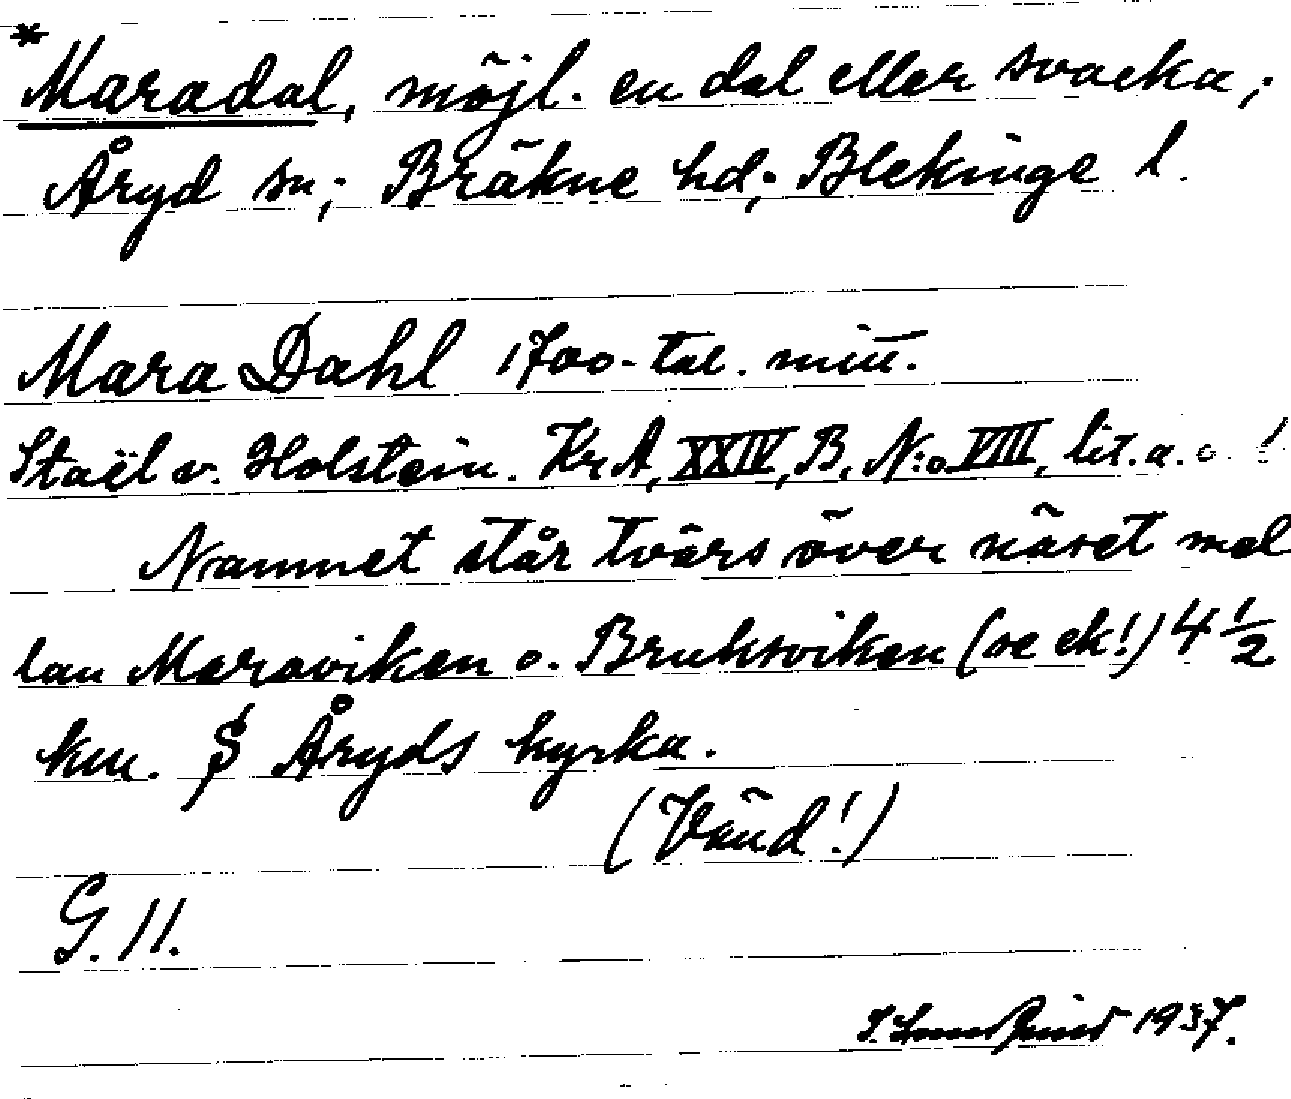 *Maradal, möjl. en dal eller svacka;
Åryd sn; Bräkne hd; Blekinge l.
Mara Dahl 1700-tal. mitt.
Staël v. Holstein. KrA, XXIV, B, N:o VIII, lit. a. o !
Namnet står tvärs över näset mel
lan Maraviken o. Bruksviken (se ek!) 4 1/2
km. S Åryds kyrka.
(Vänd!)
G. 11.
1937.